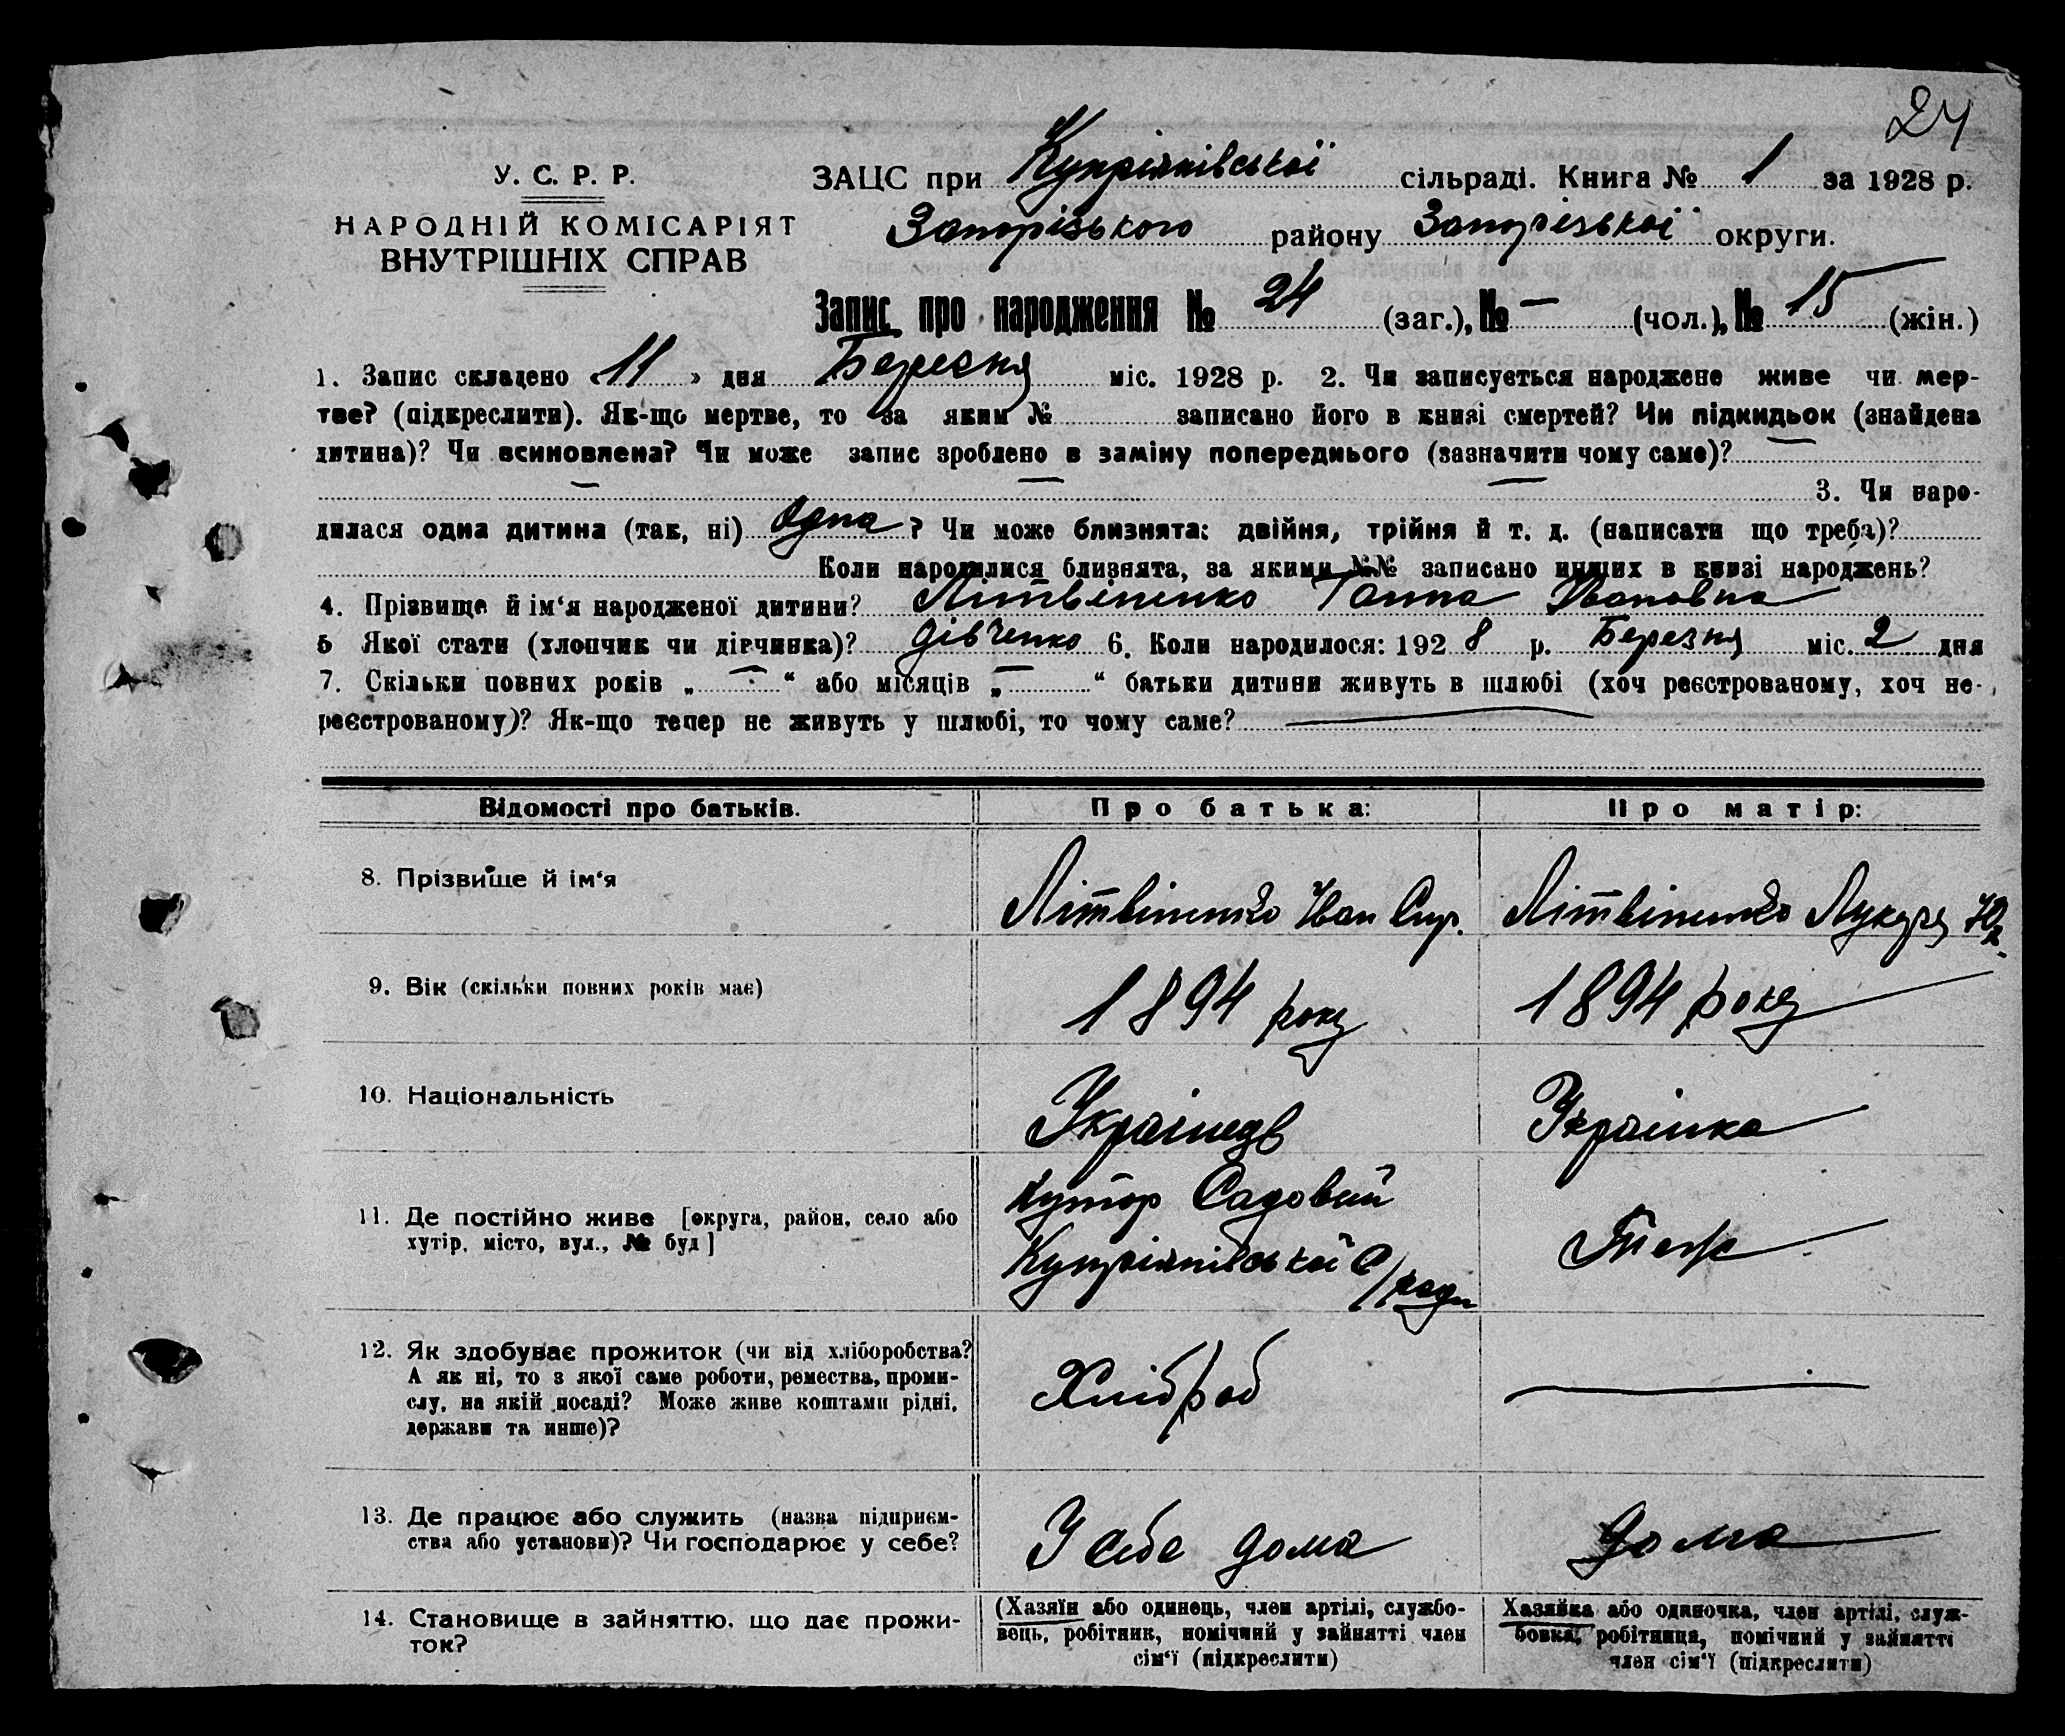 24
У. С. Р. Р.
НАРОДНІЙ КОМІСАРІЯТ
ВНУТРІШНІХ СПРАВ
ЗАЦС при Купріянівської сільраді. Книга № 1 за 1928 р.
Запорізького району Запорізької округи.
Запис про народження № 24 (заг.), № — (чол.), № 15 (жін.)
1. Запис складено « 11 » дня Березня міс. 1928 р. 2. Чи записується народжене живе чи мер-
тве? (підкреслити). Як-що мертве, то за яким № записано його в книзі смертей? Чи підкидьок (знайдена
дитина)? Чи всиновлена? Чи може запис зроблено в заміну попереднього (зазначити чому саме)? —
— — — 3. Чи наро-
дилася одна дитина (так, ні) Одна ? Чи може близнята: двійня, трійня й т. д. (написати що треба)?
Коли народилися близнята, за якими №№ записано инших в книзі народжень?
4. Прізвище й ім‘я народженої дитини? Літвіненко Ганна Івановна
5 Якої стати (хлопчик чи дівчинка)? дівченко 6. Коли народилося: 192 8 р. Березня міс. 2 дня
7. Скільки повних років „ — “ або місяців „ — “ батьки дитини живуть в шлюбі (хоч реєстрованому, хоч не-
реєстрованому)? Як-що тепер не живуть у шлюбі, то чому саме? —
Відомості про батьків. Про батька: Про матір:
8. Прізвище й ім‘я Літвіненко Іван Спр. Літвіненко Лукеря
9. Вік (скільки повних років має) 1894 року 1894 року
10. Національність Українець Українка
11. Де постійно живе [округа, район, село або
хутір, місто, вул., № буд]
Хутор Садовий
Купріянівської С/ради
Теж
12. Як здобуває прожиток (чи від хліборобства?
А як ні, то з якої саме роботи, ремества, проми-
слу, на якій посаді? Може живе коштами рідні,
держави та инше)?
Хліброб —
13. Де працює або служить (назва підприєм-
ства або установи)? Чи господарює у себе?
У себе дома дома
14. Становище в зайняттю, що дає прожи-
ток?
(Хазяїн або одинець, член артілі, службо-
вець, робітник, помічний у зайнятті член
сім‘ї (підкреслити)
Хазяйка або одиночка, член артілі, служ-
бовка, робітниця, помічний у зайнятті
член сім‘ї (підкреслити)